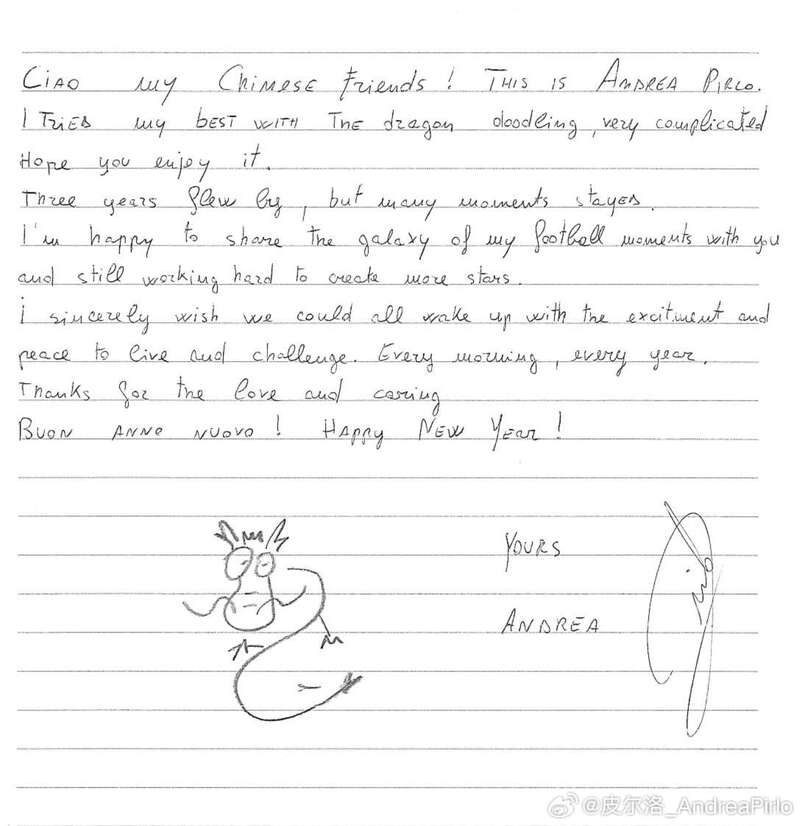 Ciao my Chinese friends! This is Andrea Pirlo.
I tried my best with the dragon doodling, very complicated
Hope you enjoy it.
Three years flew by, but many moments stayed.
I'm happy to share the galaxy of my football moments with you
and still working hard to create more stars.
i sincerely wish we could all wake up with the excitment and
peace to live and challenge. Every morning, every year.
Thanks for the love and caring
Buon anno nuovo! Happy New Year!
Yours
Andrea
@皮尔洛_AndreaPirlo